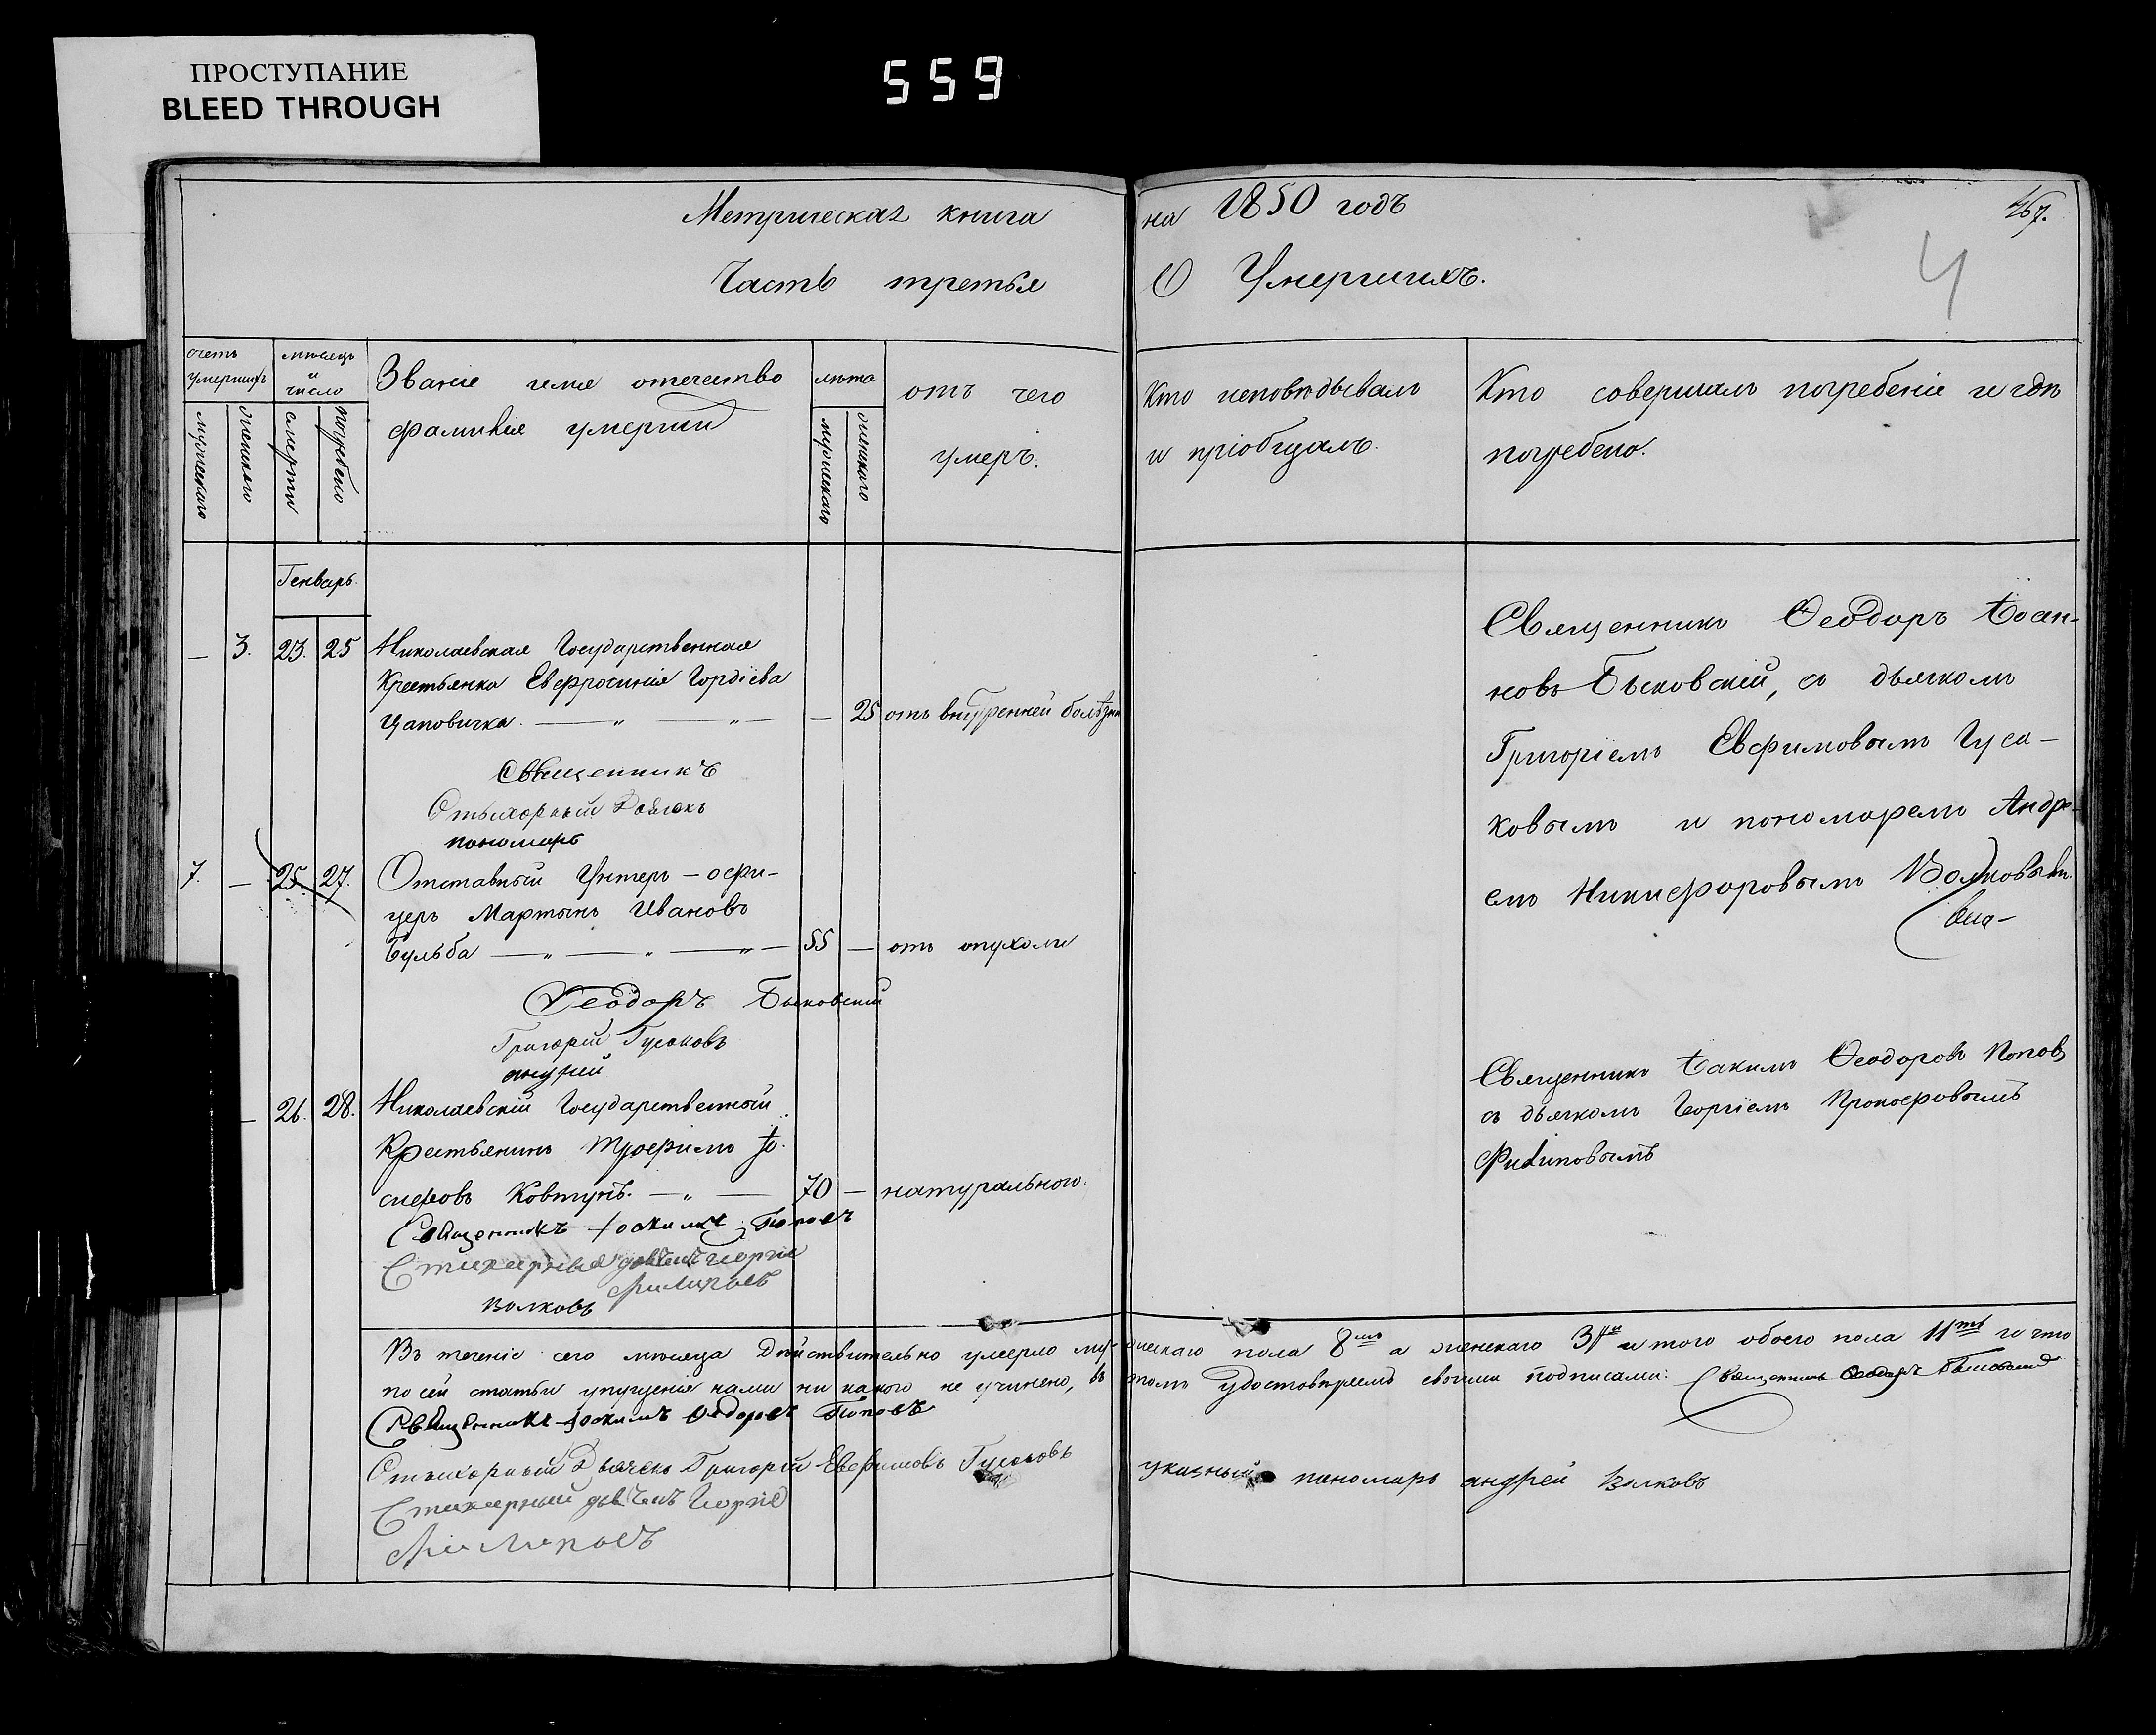 ПРОСТУПАНИЕ
BLEED THROUGH
559
Метрическая книга на 1850 годъ
467.
Часть третья О Умершихъ.
4
счетъ умершихъ
мужескаго
женскаго
мѣсяцъ и число
смерти
погребено
Званіе имя отечество
фамилія умерши
лѣта
мужескаго
женскаго
отъ чего
умеръ.
Кто исповѣдывалъ
и пріобщалъ.
Кто совершалъ погребеніе и гдѣ
погребено.
Генварь.
— 3. 23. 25 Николаевская Государственная
Крестьянка Евфросинія Гордіева
Цаповичка. — „ — „ — — 25 отъ внутренней болѣзни
Священникъ
Стихорный Дьячокъ
пономарь
7. — 25. 27. Отставный Унтеръ-офи-
церъ Мартынъ Ивановъ
Бульба — „ — „ — „ — 55 — отъ опухоли
Ѳеодоръ Быковскій
Григорій Гусаковъ
андрей
— 26. 28. Николаевскій Государственный
Крестьянинъ Трофимъ Іо-
сифовъ Ковтунъ. — „ — 70 — натуральной.
Священникъ Іоакимъ Поповъ
Стихирный дьячекъ Георгіе
Филиповъ
Волковъ
Священникъ Ѳеодоръ Іоан-
новъ Быковскій, съ дьячкомъ
Григоріемъ Евфимовымъ Гуса-
ковымъ и пономаремъ Андре-
емъ Никифоровымъ Волковымъ.
Священникъ Іакимъ Ѳеодоровъ Поповъ
съ дьячкомъ Георгіемъ Прокофовымъ
Филиповымъ
Въ теченіе сего мѣсяца дѣйствительно умерло мужескаго пола 8мь а женскаго 3и и того обоего пола 11ть и что
по сей статьи упущенія нами ни какого не учинено, въ томъ удостовѣряемъ своими подписами: Священникъ Ѳеодоръ Быковскій
Священникъ Іоакимъ Ѳедоровъ Поповъ
Стихорный Дьячекъ Григорій Евфимовъ Гусаковъ указный пономарь андрей Волковъ
Стихирный дьячекъ Георгіе
Филиповъ